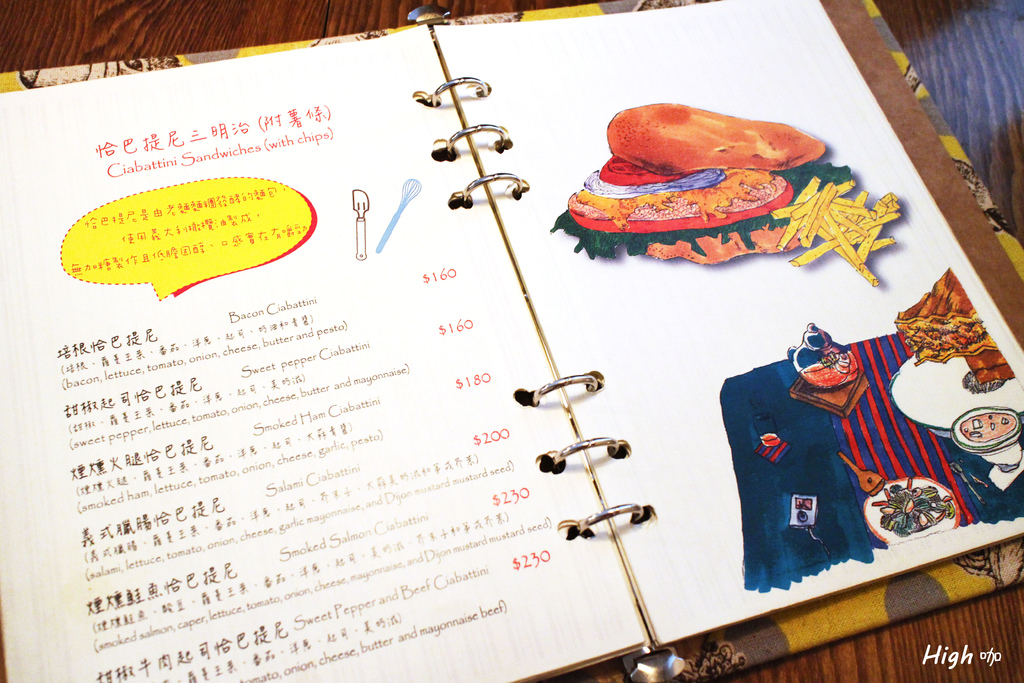 恰巴提尼三明治 (附薯條)
Ciabattini Sandwiches (with chips)
恰巴提尼是由老麵麵糰發酵的麵包
使用義大利橄欖油製成，
無加糖製作且低膽固醇、口感實在有嚼勁
$160
Bacon Ciabattini
培根恰巴提尼
(培根、蘿蔓生菜、番茄、洋蔥、起司、奶油和青醬)
(bacon, lettuce, tomato, onion, cheese, butter and pesto)
$160
Sweet pepper Ciabattini
甜椒起司恰巴提尼
(甜椒、蘿蔓生菜、番茄、洋蔥、起司、美奶滋)
(sweet pepper, lettuce, tomato, onion, cheese, butter and mayonnaise)
$180
Smoked Ham Ciabattini
煙燻火腿恰巴提尼
(煙燻火腿、蘿蔓生菜、番茄、洋蔥、起司、大蒜青醬)
(smoked ham, lettuce, tomato, onion, cheese, garlic, pesto)
$200
Salami Ciabattini
義式臘腸恰巴提尼
(義式臘腸、蘿蔓生菜、番茄、洋蔥、起司、芥末子、大蒜美奶滋和第戎芥末)
(salami, lettuce, tomato, onion, cheese, garlic mayonnaise, and Dijon mustard mustard seed)
$230
Smoked Salmon Ciabattini
煙燻鮭魚恰巴提尼
(煙燻鮭魚、酸豆、蘿蔓生菜、番茄、洋蔥、起司、美奶滋、芥末子和第戎芥末)
(smoked salmon, caper, lettuce, tomato, onion, cheese, mayonnaise, and Dijon mustard mustard seed)
$230
甜椒牛肉起司恰巴提尼 Sweet Pepper and Beef Ciabattini
蘿蔓生菜、番茄、洋蔥、起司、美奶滋)
tomato, onion, cheese, butter and mayonnaise beef)
High 咖